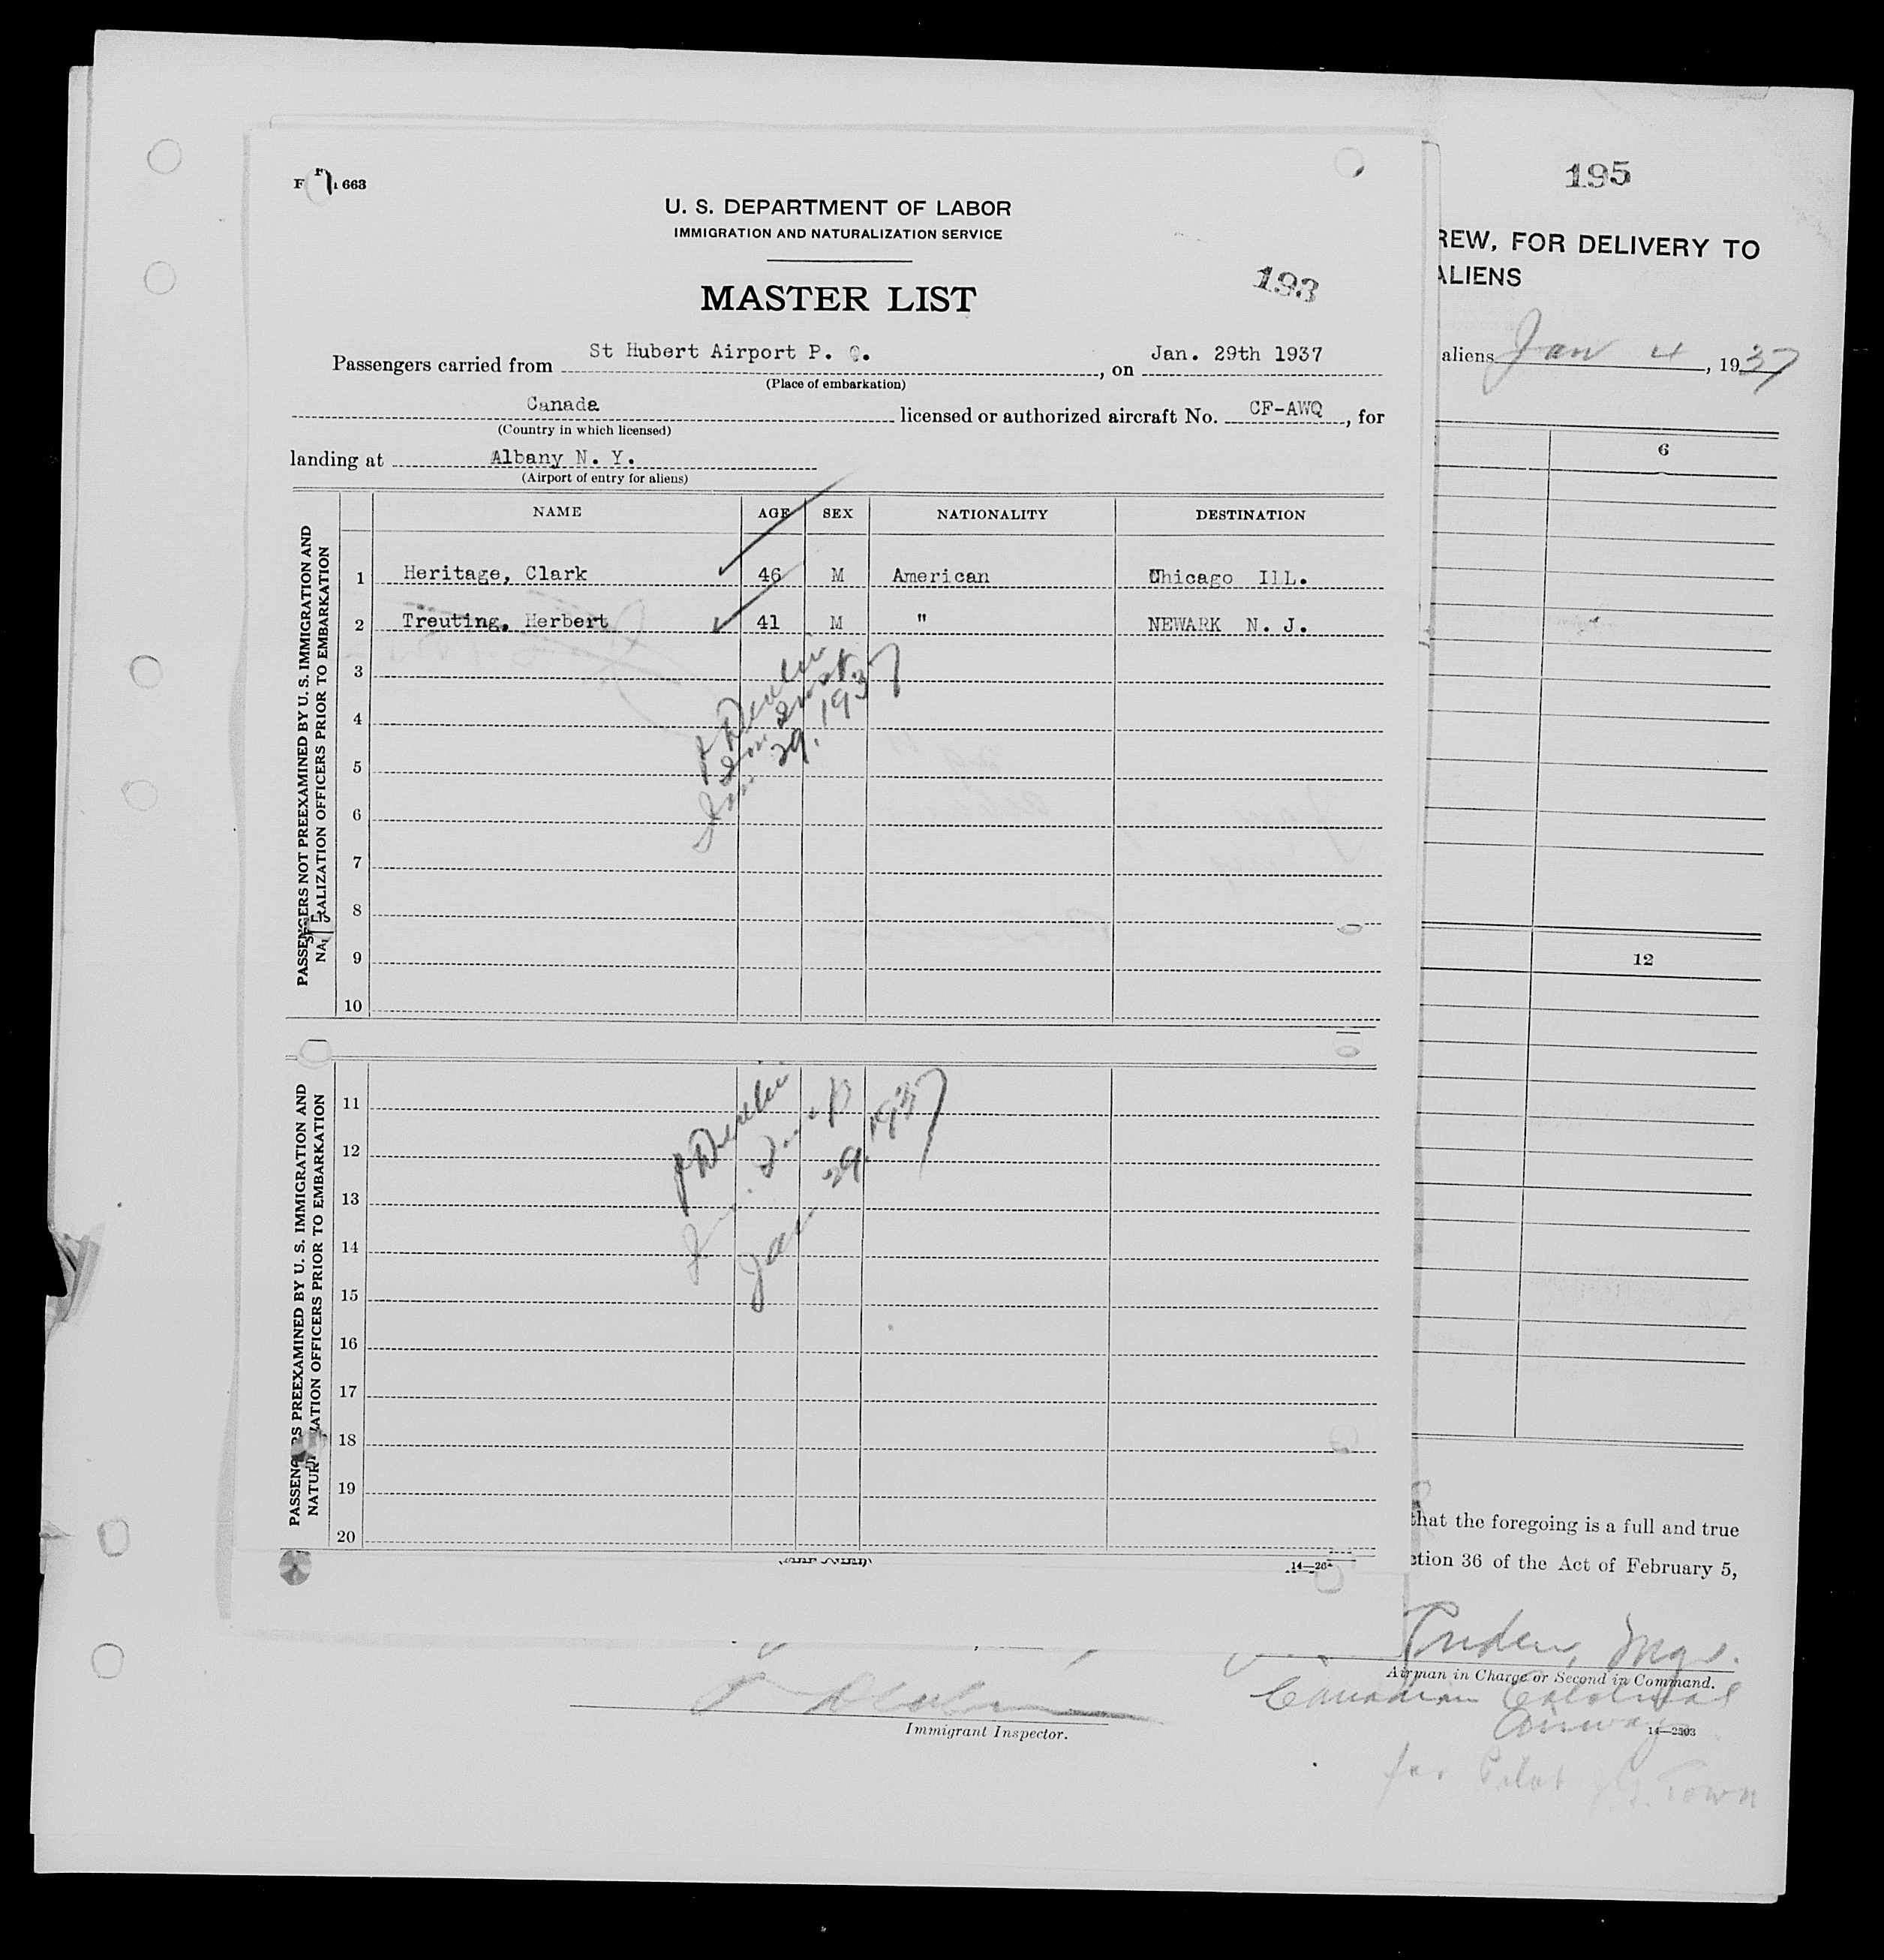 663
U. S. DEPARTMENT OF LABOR
IMMIGRATION AND NATURALIZATION SERVICE
193
MASTER LIST
Passengers carried from St Hubert Airport P. Q., on Jan. 29th 1937
(Place of embarkation)
Canada licensed or authorized aircraft No. CF-AWQ, for
(Country in which licensed)
landing at Albany N. Y.
(Airport of entry for aliens)
NAME AGE SEX NATIONALITY DESTINATION
PASSENGERS NOT PREEXAMINED BY U. S. IMMIGRATION AND
RALIZATION OFFICERS PRIOR TO EMBARKATION
1 Heritage, Clark 46 M American Chicago ILL.
2 Treuting, Herbert 41 M " NEWARK N. J.
3
4
5
6
7
8
9
10
29, 1937
PASSENG RS PREEXAMINED BY U. S. IMMIGRATION AND
NATUR ATION OFFICERS PRIOR TO EMBARKATION
11
12
13
14
15
16
17
18
19
20
Jan 29, 1937
14—26
195
REW, FOR DELIVERY TO
ALIENS
aliens Jan 4, 1937
6
12
that the foregoing is a full and true
ction 36 of the Act of February 5,
Mgr.
Airman in Charge or Second in Command.
Canadian Colonial
Airways
14—2503
for Pilot Town
Immigrant Inspector.